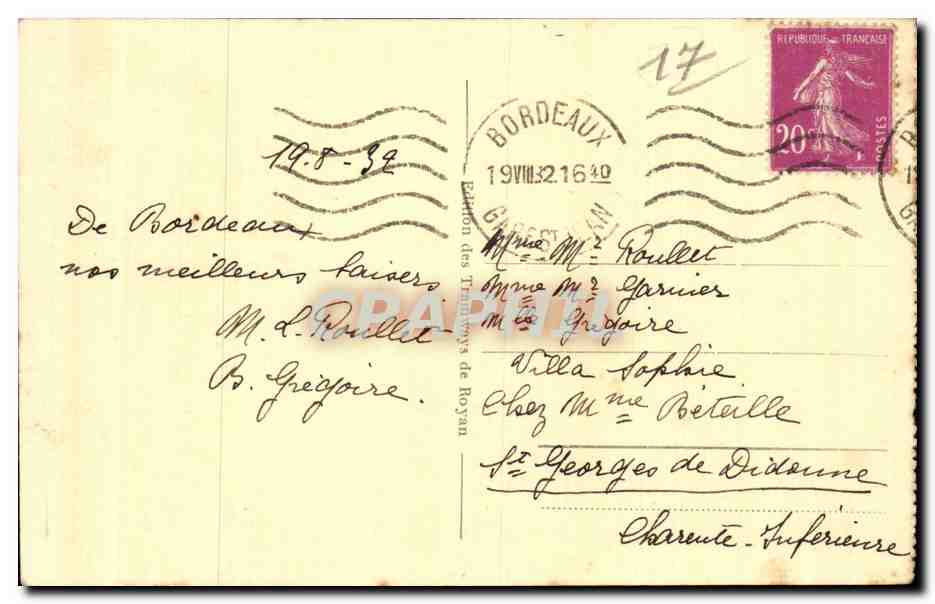 17
REPUBLIQUE FRANÇAISE
20c
POSTES
BORDEAUX
19 VIII 32 16 40
GARE ST JEAN
19.8-32
De Bordeaux
nos meilleurs baisers
M. L. Roullet
B. Grégoire.
Edition des Tramways de Royan
Mme Mr Roullet
Mme Mr Garnier
Mlle Grégoire
Villa Sophie
Chez Mme Béteille
St Georges de Didonne
Charente-Inférieure
CPAPHIL